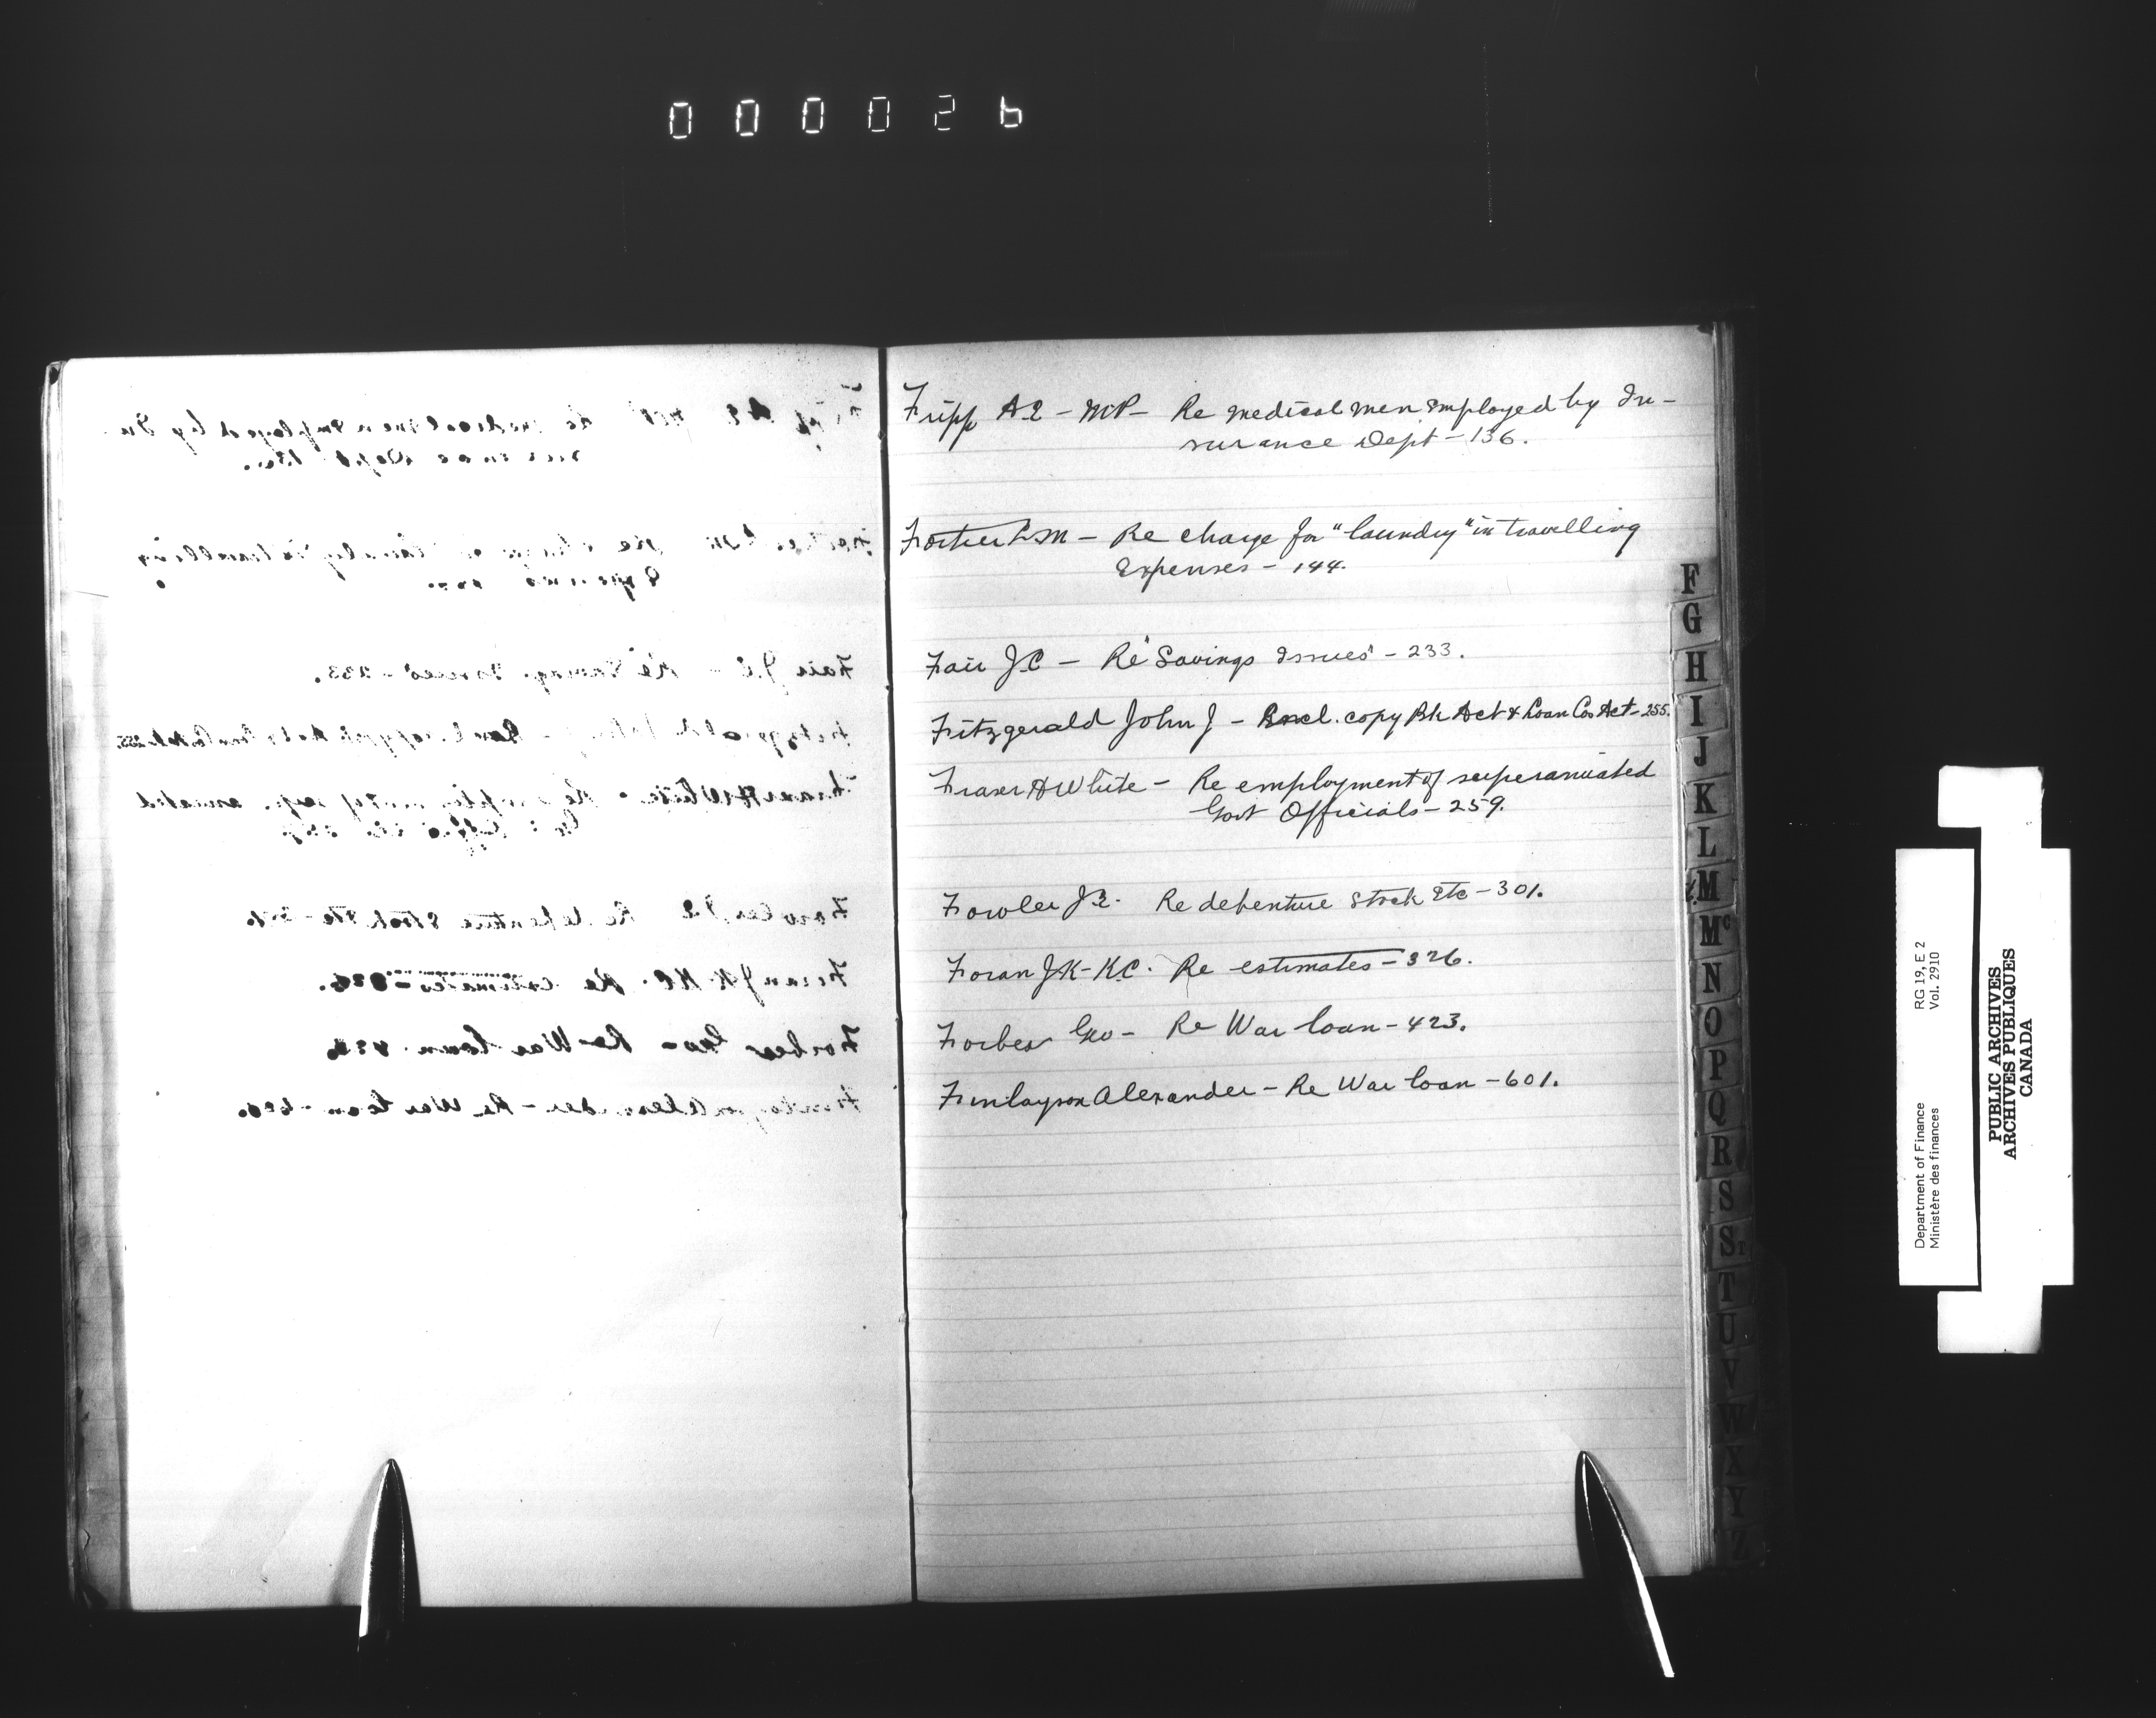 000026
Fripp A E - MP - Re medical men employed by In-
surance Dept - 136.
Fortier L M - Re charge for "laundry" in travelling
Expenses - 144.
Fair J C - Re "Savings Issues" - 233.
Fitzgerald John J - Encl. copy Bk Act & Loan Cos Act - 255.
Fraser H White - Re employment of superannuated
Govt Officials - 259.
Fowler J E. Re debenture stock Etc - 301.
Foran J K - KC. Re estimates - 326.
Forbes Geo - Re War loan - 423.
Finlayson Alexander - Re War loan - 601.
F
G
H
I
J
K
L
M
Mc
N
O
P
Q
R
S
St
T
U
V
W
X
Y
Z
Department of Finance RG 19, E 2
Ministère des finances Vol. 2910
PUBLIC ARCHIVES
ARCHIVES PUBLIQUES
CANADA